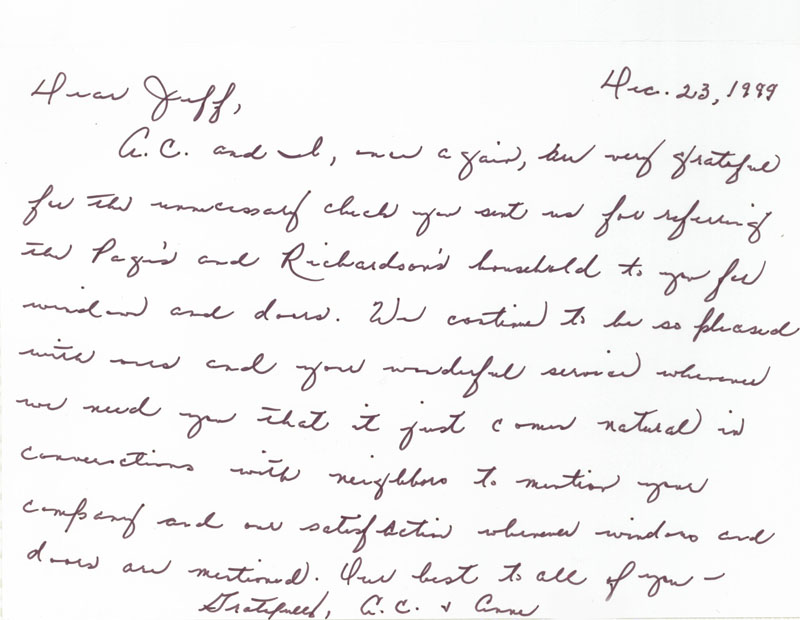 Dec. 23, 1999
Dear Jeff,
A.C. and I, once again, are very grateful
for the unnecessary check you sent us for referring
the Page's and Richardson's household to you for
window and doors. We continue to be so pleased
with ours and your wonderful service whenever
we need you that it just comes natural in
conversations with neighbors to mention your
company and our satisfaction whenever windows and
doors are mentioned. Our best to all of you –
Gratefully, A.C. & Anne